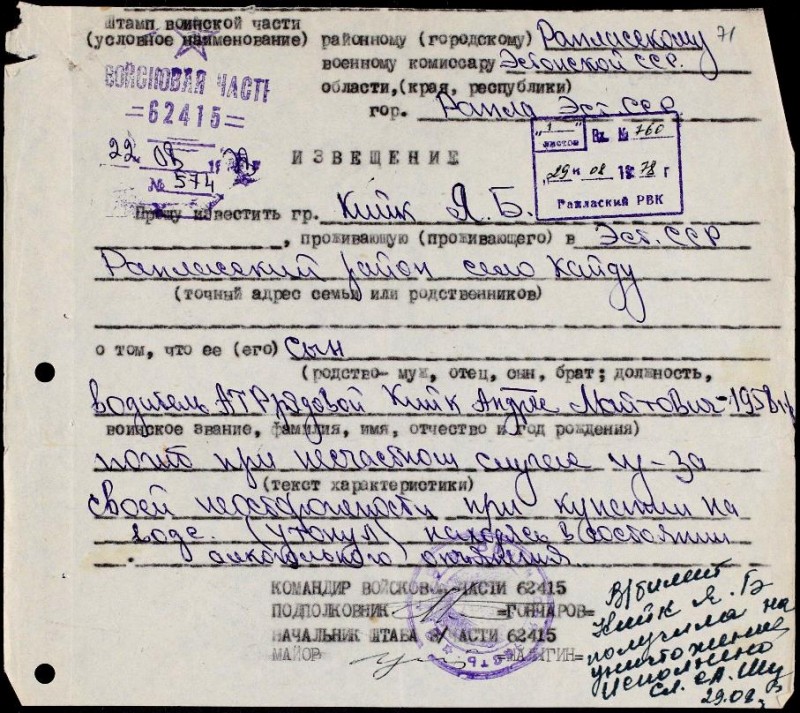 штамп воинской части
(условное наименование)
районному (городскому) Рапласскому
71
военному комиссару Эстонской ССР.
области, (края, республики)
гор. Рапла Эст. ССР
ВОЙСКОВАЯ ЧАСТЬ
=62415=
22 08
№ 574
"1" листов Вх. № 760
"29" 08 1978 г
Раплаский РВК
ИЗВЕЩЕНИЕ
Прошу известить гр. Кийк Я. Б.
, проживающую (проживающего) в Эст. ССР
Рапласский район село Кайду
(точный адрес семьи или родственников)
о том, что ее (его) сын
(родство- муж, отец, сын, брат; должность,
водитель АТР рядовой Кийк Андре Майтович-1958
воинское звание, фамилия, имя, отчество и год рождения)
погиб при несчастном случае из-за
(текст характеристики)
своей неосторожности при купании на
воде. (утонул) находясь в состоянии
алкогольного опьянения
КОМАНДИР ВОЙСКОВОЙ ЧАСТИ 62415
ПОДПОЛКОВНИК =ГОНЧАРОВ=
НАЧАЛЬНИК ШТАБА В/ЧАСТИ 62415
МАЙОР
В/билет
Кийк Я. Б
получила на
уничтожение
Исполнено
29.08